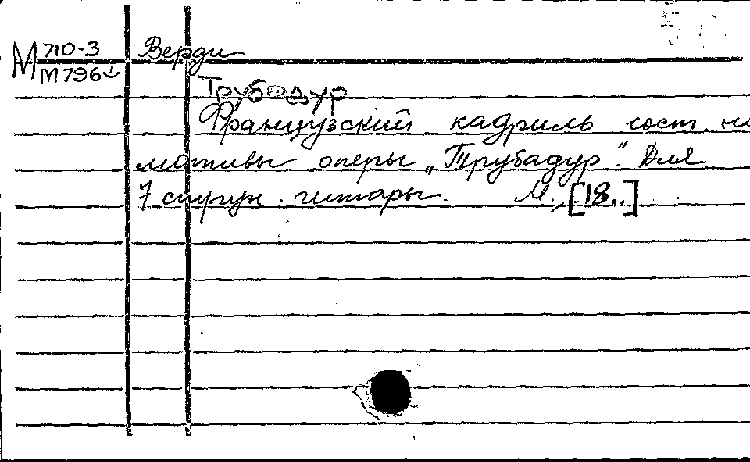 М 710-3 Верди
М 796
Трубадур
Французский кадриль сост. на
мотивы оперы „Трубадур". Для
7 струн. гитары. М., [18..]